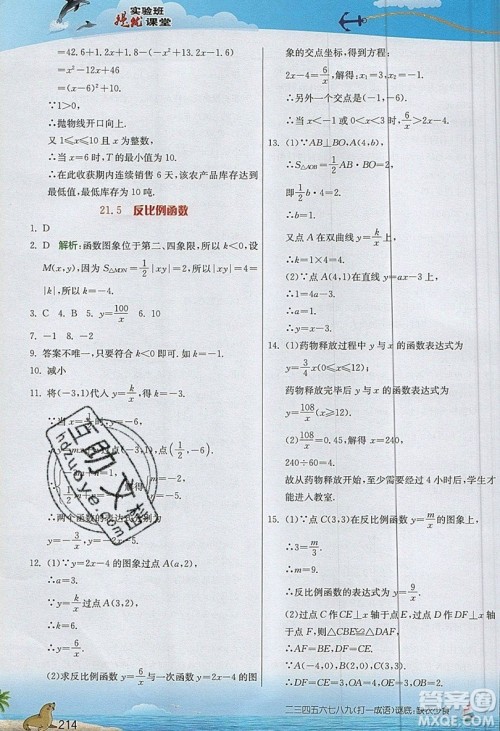 实验班
提优 课堂
=42.6+1.2x+1.8-0.6x-(-x²+12.6x+8.4)
=x²-12x+36+10
=(x-6)²+10.
∵1>0,
∴抛物线开口向上.
又1≤x≤10且x为整数,
∴当x=6时,T的最小值为10.
∴在此收获期内连续销售6天,该农产品库存达到
最低值,最低库存为10吨.
21.5 反比例函数
1. D
2. D 解析:函数图象位于第二、四象限,所以k<0,设
M(x,y),因为S△MON=1/2|xy|=2,所以|xy|=4=
|k|,所以k=-4.
3. C 4. B 5. y=100/x 6. 10
7. -1 8. -2
9. 答案不唯一,只要符合k<0即可.
10. 减小
11. 将(-3,1)代入
∴两个函数的表达式分别为
12. (1)∵y=2x-4的图象过点A(a,2),
∴2a-4=2.
∴a=3.
∵y=k/x过点A(3,2),
∴k=6.
(2)求反比例函数y=6/x与一次函数y=2x-4的图
象的交点坐标,得到方程:
2x-4=6/x,解得:x₁=3,x₂=-1.
∴另外一个交点是(-1,-6).
∴当x<-1或0<x<3时,6/x>2x-4.
13. (1)∵AB⊥x轴于点B,点A(4,b),
∴S△AOB=1/2OB·AB=1/2×4×b=2.
∴b=1.
又点A在双曲线y=k/x上,
∴k=4×1=4.
(2)∵点A(4,1)在直线y=ax-3上,
∴1=4a-3.
∴a=1.
14. (1)药物释放过程中y与x的函数表达式为
y=3/4x(0≤x≤12).
药物释放完毕后y与x的函数表达式为
y=108/x(x≥12).
(2)108/x=0.45,解得x=240,
240÷60=4.
故从药物释放开始,至少需要经过4小时后,学生才
能进入教室.
15. (1)∵点C(3,3)在反比例函数y=m/x的图象上,
∴3=m/3.
∴m=9.
∴反比例函数的表达式为y=9/x.
(2)过点C作CE⊥x轴于点E,过点D作DF⊥x轴
于点F,则△CBE≌△DAF.
∴AF=BE,DF=CE.
214
二三四五六七八九(打一成语)谜底:缺衣少食
互助文档
hdzuoye.com
答案圈
MXQE.COM